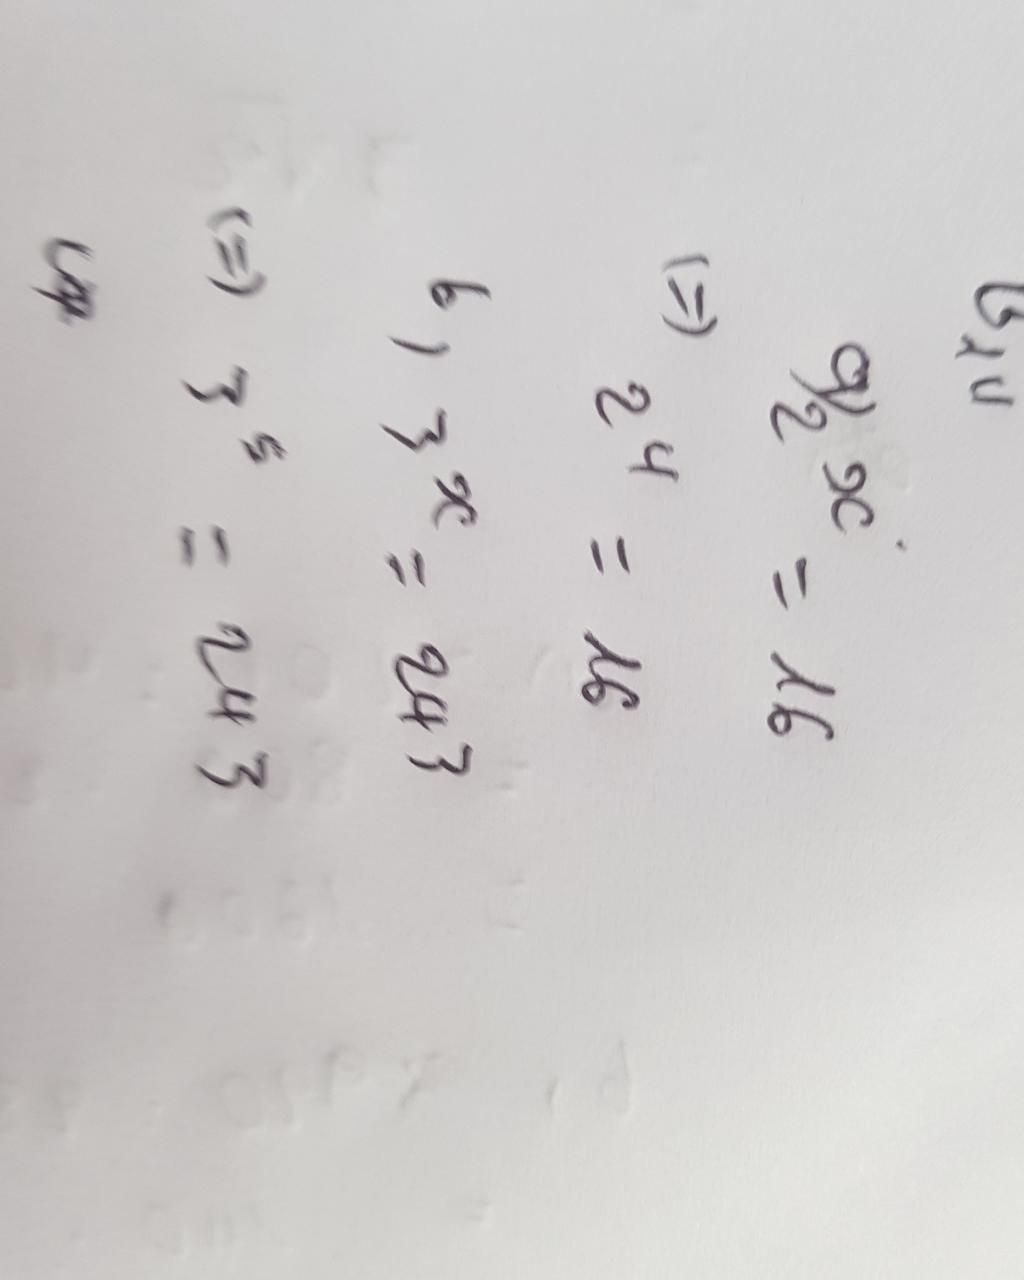 a) 2^x = 16
(=) 2^4 = 16
b) 3^x = 243
(=) 3^5 = 243